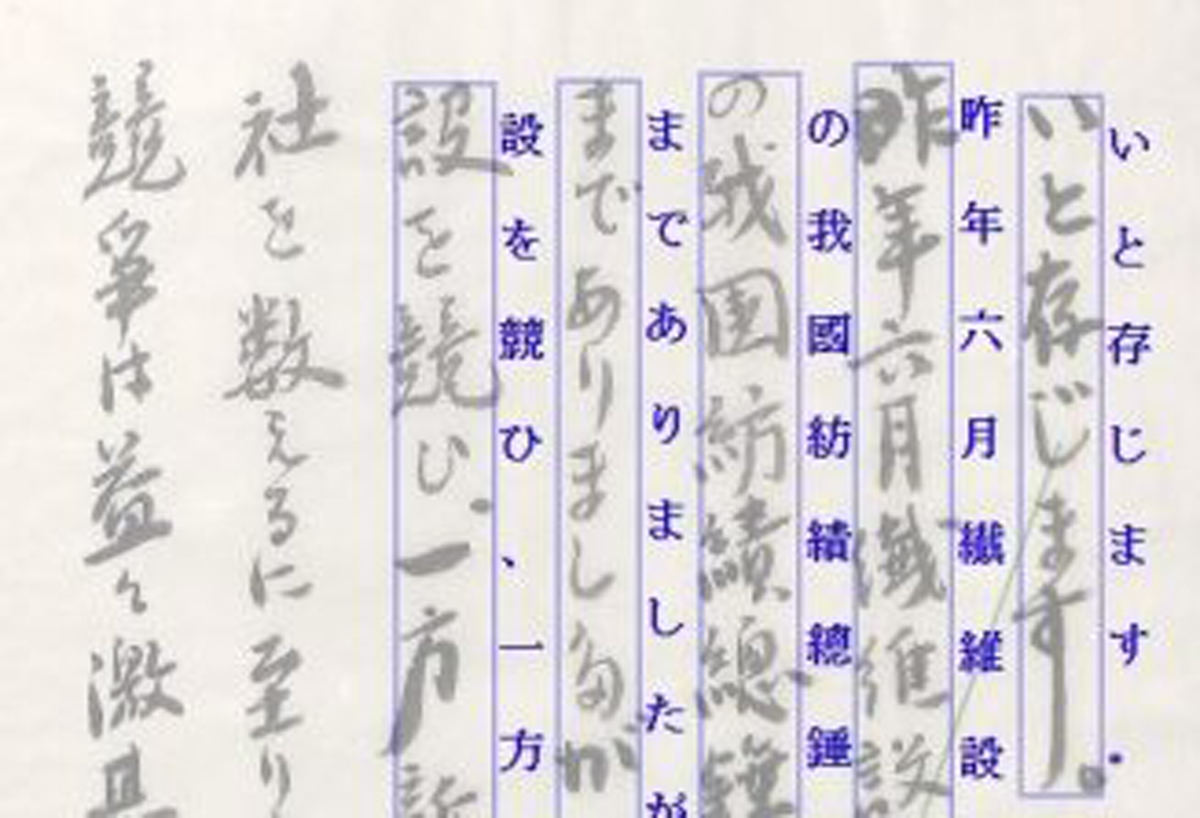 いと存じます。
いと存じます。
昨年六月繊維設
昨年六月繊維設
の我國紡績總錘
の我国紡績總錘
までありましたが
までありましたが
設を競ひ、一方
設を競ひ、一方
社を数えるに至り
競争は益々激